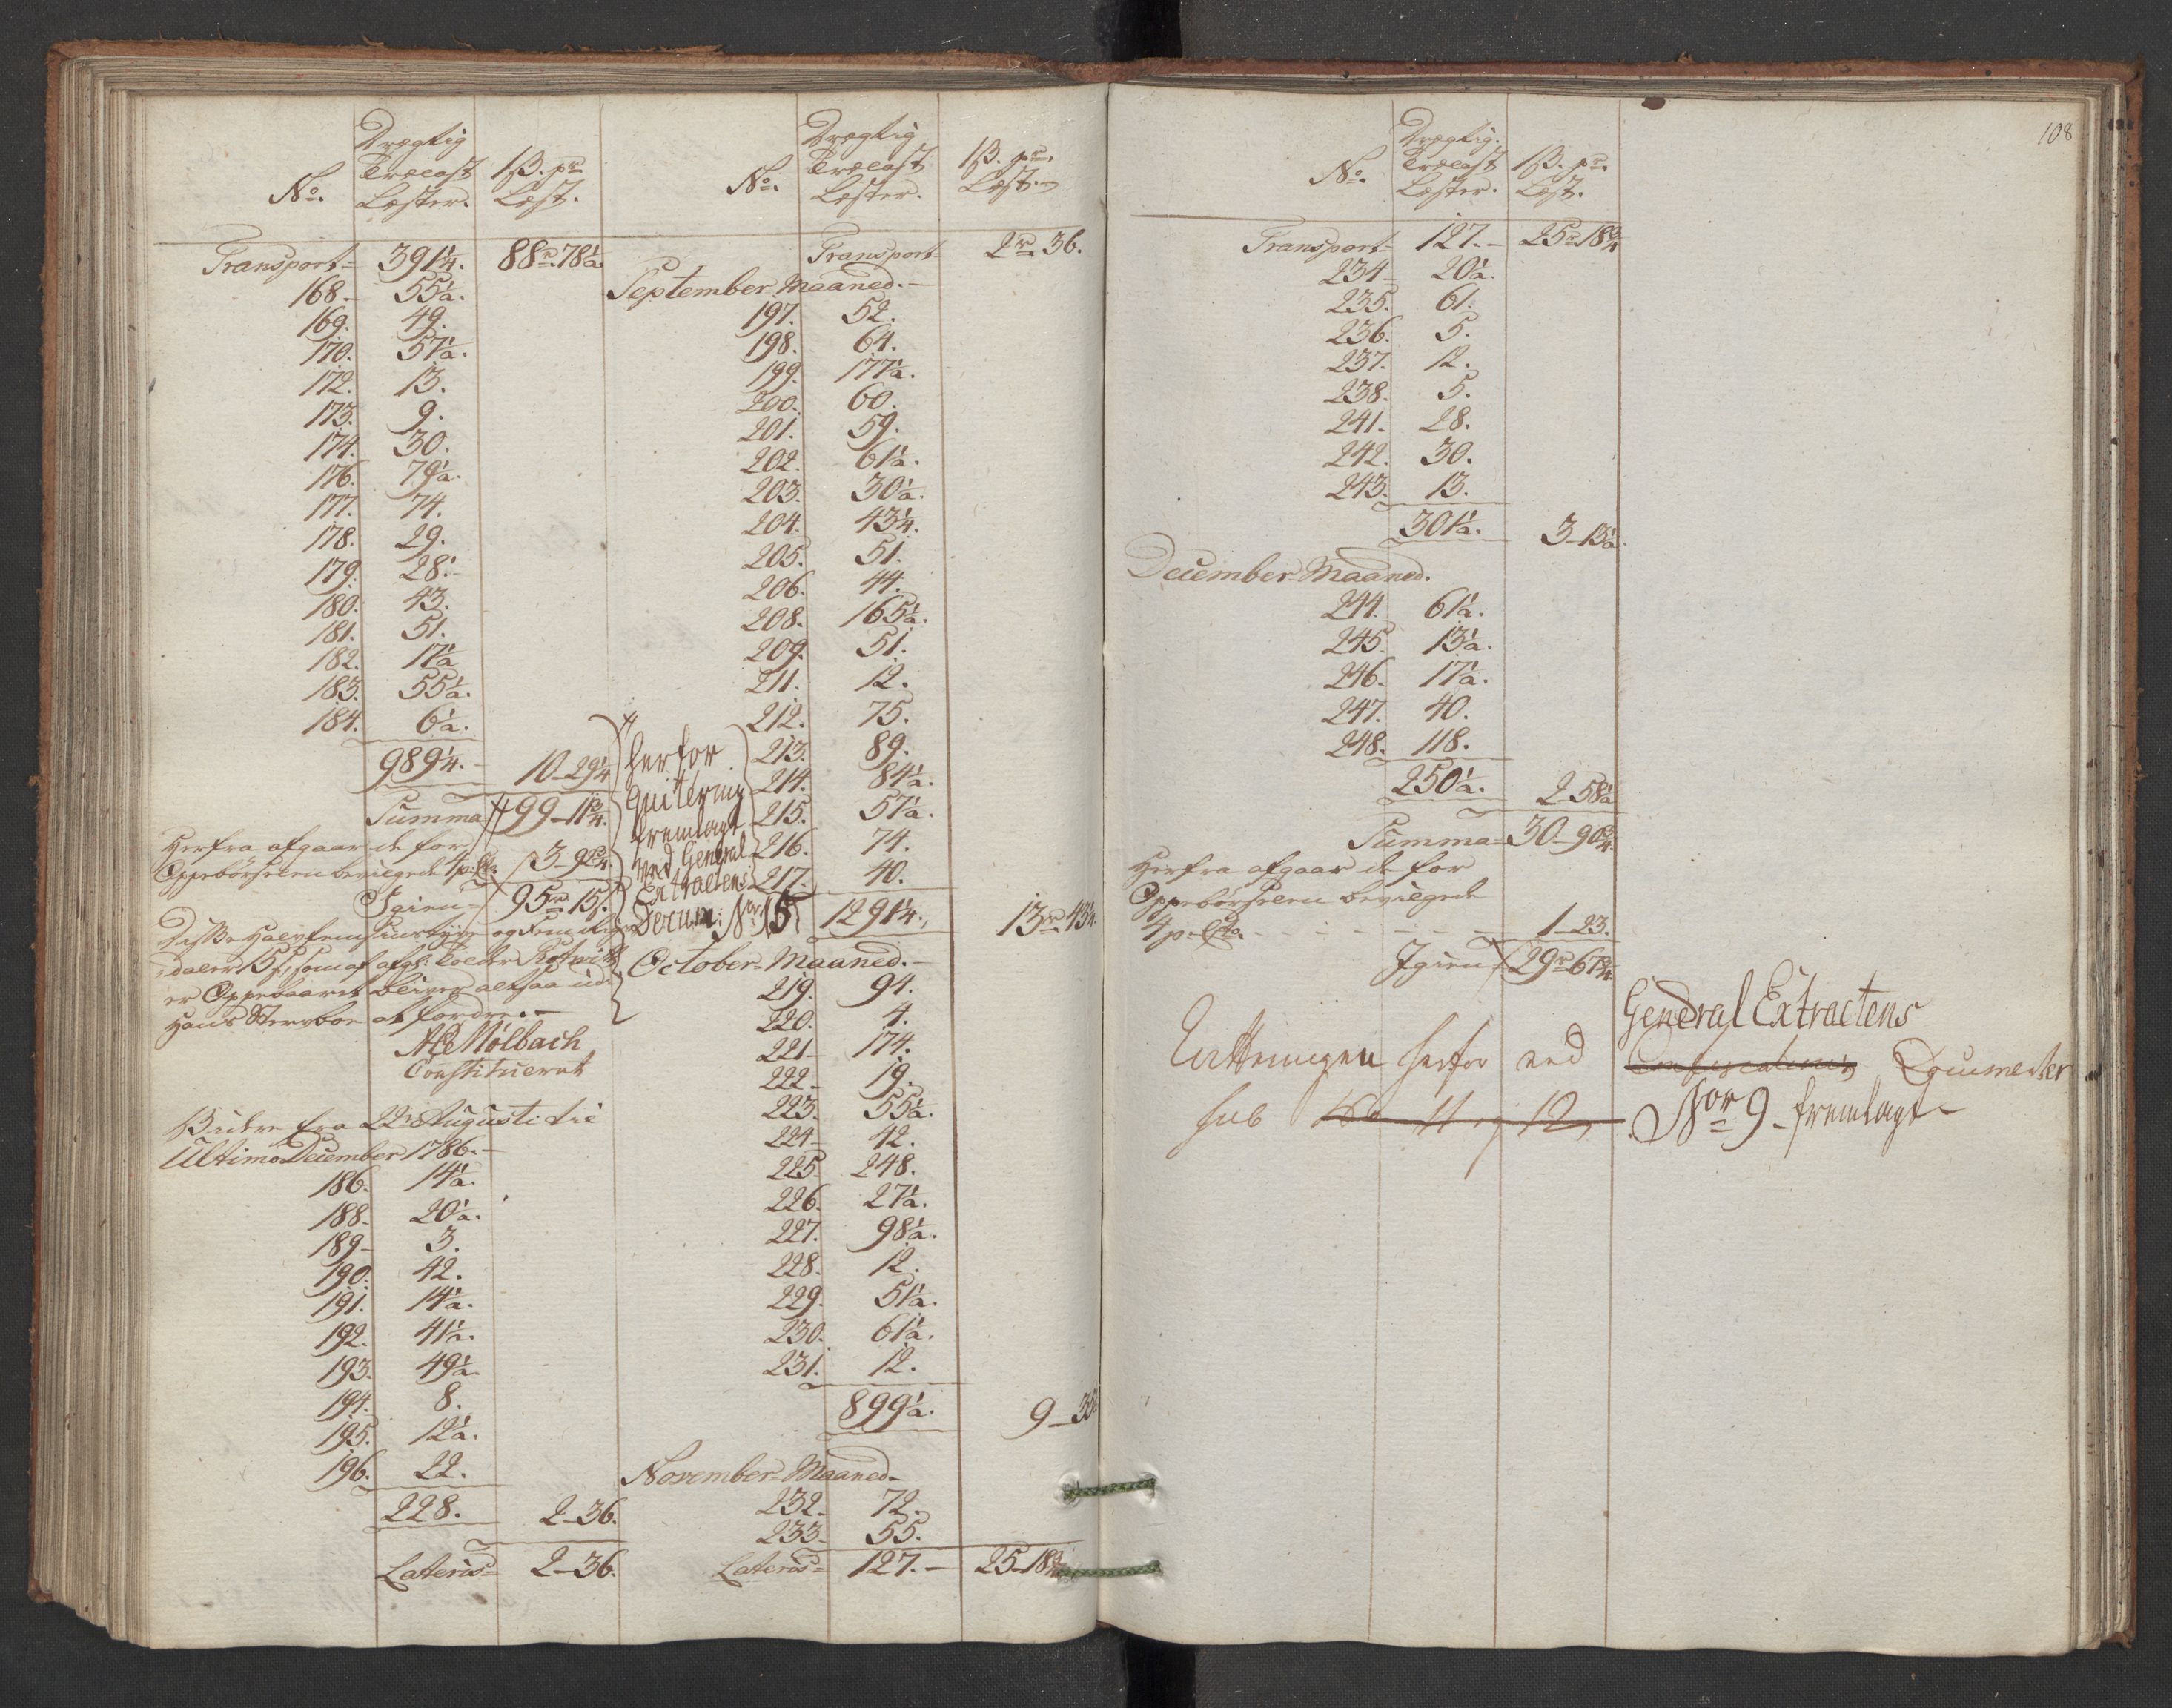 No.
Drægtig
Trælast
Læster.
1ß. pr
Læst.
Transport= 391¼. 88r. 78½
168.- 55½.
169. 49.
170. 57½.
172. 13.
173. 9.
174. 30.
176. 79½.
177. 74.
178. 29.
179. 28.-
180. 43.
181. 51.
182. 17½
183. 55½.
184. 6½.
989¼.- 10-29¼
Summa 99-11¾.
Herfra afgaar de for
Oppebørselen bevilgede 4 p. Cto. 3-92¾.
Igien= 95r 15.
daler 15ß, som af afg:
er Oppebaaret bliver altsaa udi
Hans Stervboe at fordre.-
Mølbach
Constitueret
Videre fra 22n Augusti til
Ultimo December 1786.-
186. 14½.
188. 20½.
189- 3.
190. 42.
191. 14½.
192. 41½.
193. 49½
194. 8.
195. 12½.
196. 22.
228. 2-36.
Lateris= 2-36.
No.
Drægtig
Trælast
Læster.
1ß. pr.
Læst.
Transport= 2r. 36.
September Maaned.-
197. 52.
198. 64.
199. 177½.
200. 60.
201. 59.
202. 61½.
203. 30½.
204. 43¼.
205. 51.
206. 44.
208. 165½.
209. 51.
211. 12.
212. 75.
213. 89.
214. 84½.
215. 57½.
216. 74.
217. 40.
herfor
Quitering
fremlagt
ved General
Extractens
Docum: Nr 15
1291¼. 13r. 43¼.
October Maaned.-
219. 94.
220. 4.
221- 174.
222- 19.
223. 55½.
224- 42.
225. 248.
226. 27½.
227. 98½.
228. 12.
229. 51½.
230. 61½.
231. 12.
899½. 9-35
November Maaned-
232- 72.
233- 55.
Lateris= 127.- 25-18¾
108
No.
Drægtig.
Trælast
Læster.
1ß. pr.
Læst.
Transport= 127.- 25r 18¾
234- 20½.
235. 61.
236. 5.
237. 12.
238. 5.
241. 28.
242. 30.
243. 13.
301½. 3-13½.
December Maaned.
244. 61½.
245. 13½.
246. 17½.
247. 40.
248. 118.
250½. 2-58½
Summa= 30-90¾.
Herfra afgaar de for
Oppebørselen bevilgede
4 p. Cto. - - - - - 1-23.
Igien 29r 67¾.
General Extractens
herfor ved Documenter
sub No 11 og 12, Nor 9- fremlagt-